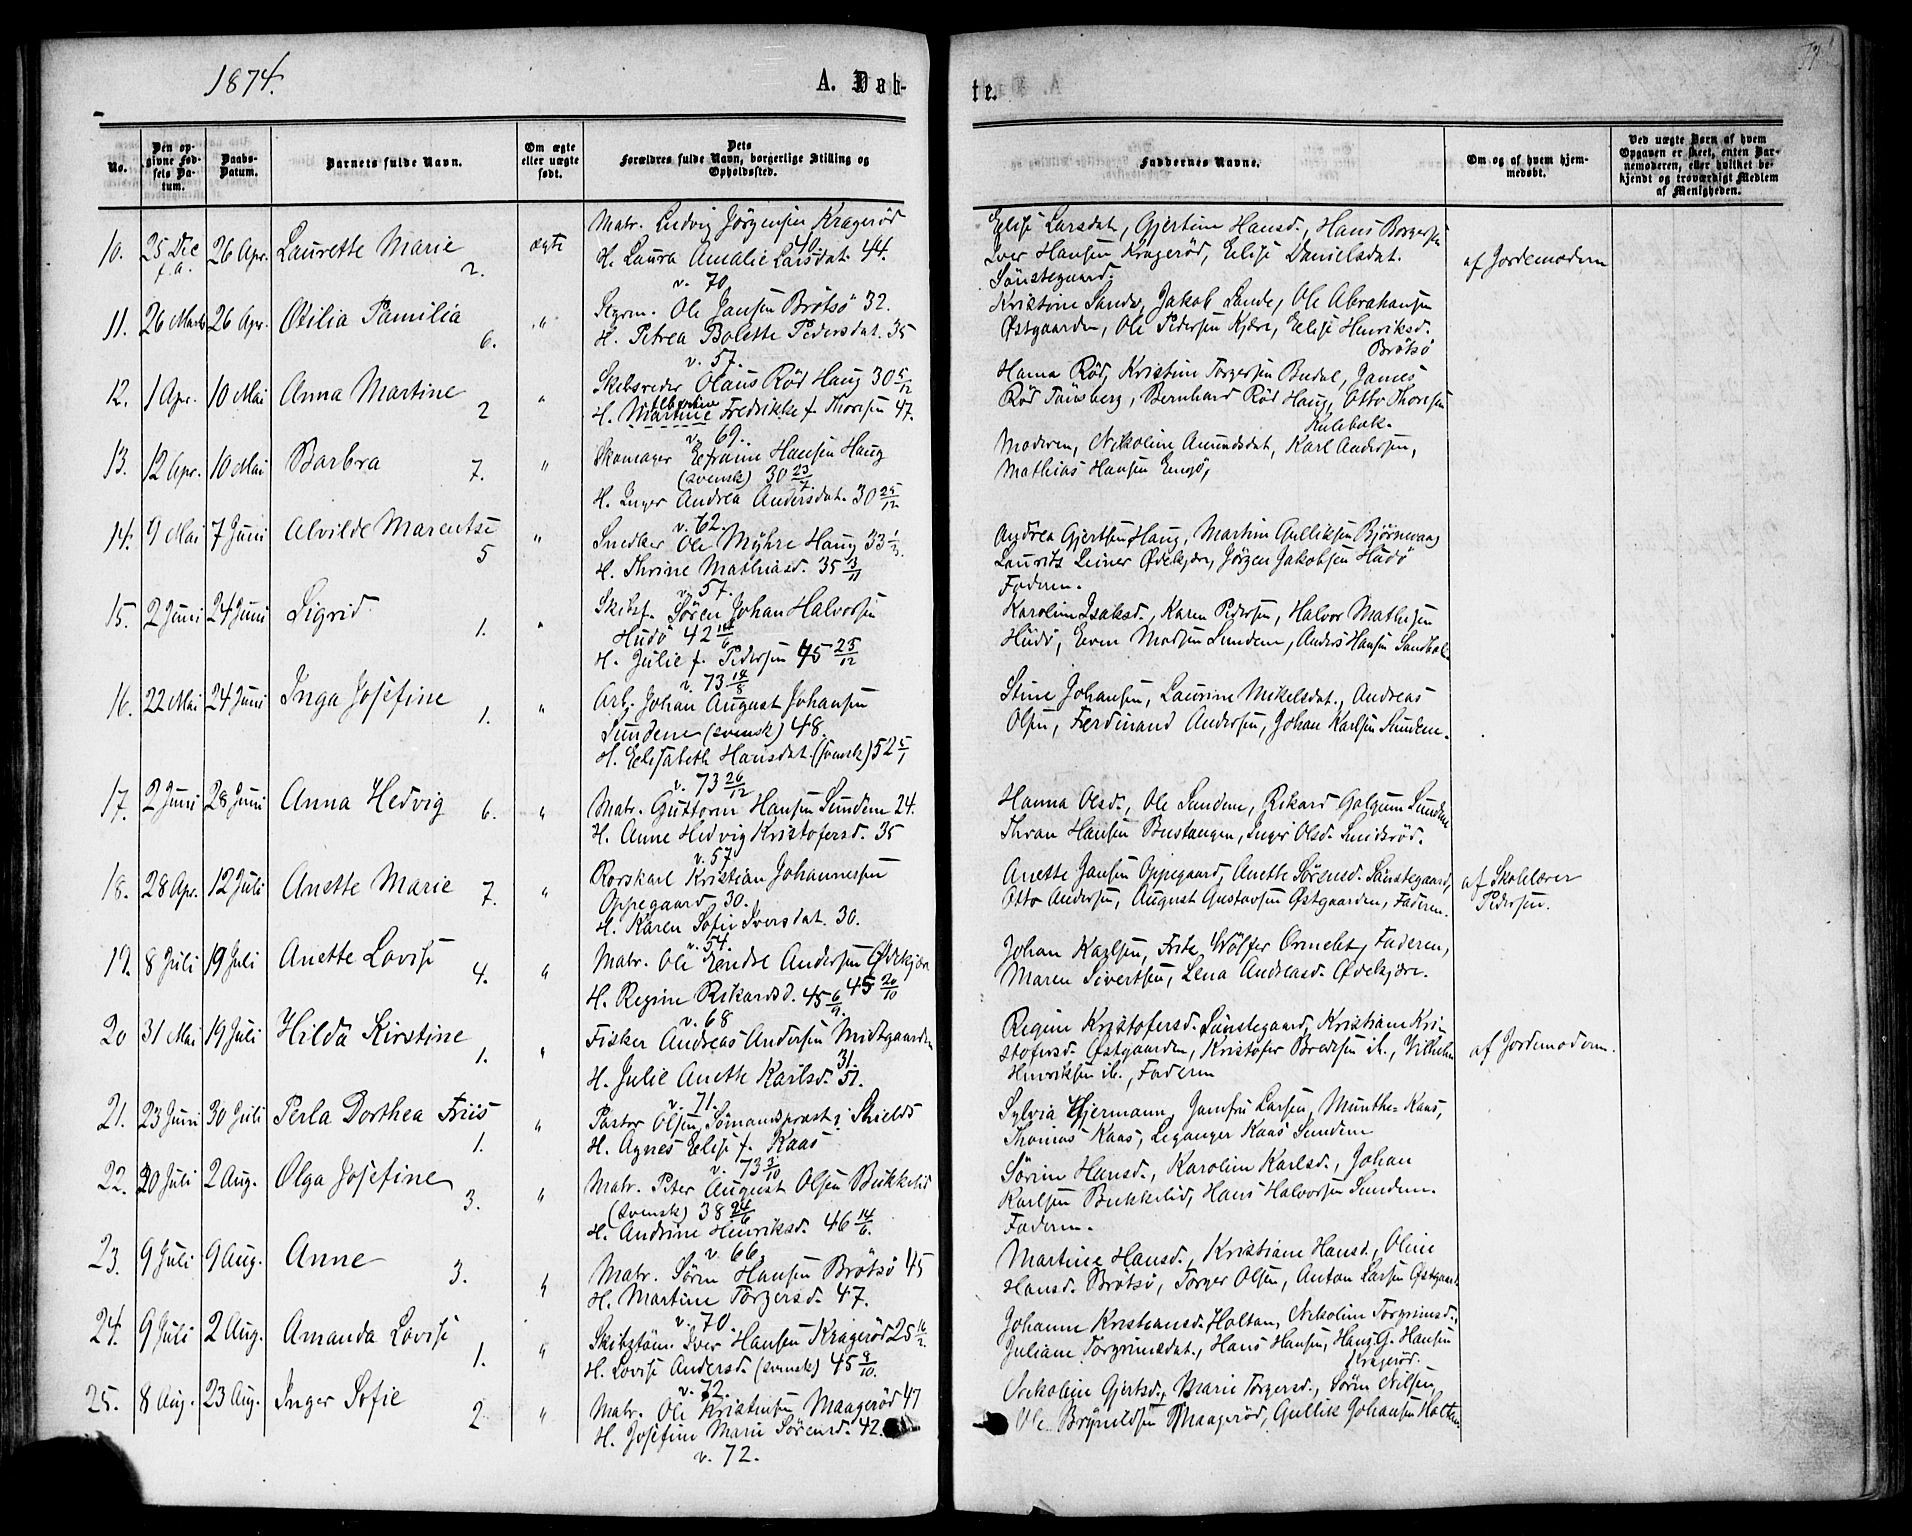 1874.
A. Døb-
te.
No.
Den opgivne Fødsels Datum.
Daabs-Datum.
Barnets fulde Navn.
Om ægte eller uægte født.
Dets Forældres fulde Navn, borgerlige Stilling og Opholdssted.
Faddernes Navne.
Om og af hvem hjemmedøbt.
Ved uægte Børn af hvem Opgaven er skeet, enten Barnemoderen, eller hvilket bekjendt og troværdigt Medlem af Menigheden.
10. 25 Dec f.a. 26 Apr. Laurette Marie 2. ægte
Matr. Ludvig Jörgensen Kragerød 40
H. Laura Amalie Larsdat. 44.
v. 70
Elise Larsdat, Gjertine Hansd., Hans Borgersen
Iver Hansen Kragerød, Elise Danielsdat.
Sönstegaard.
af Jordemodern
11. 26 Marts 26 Apr. Otilia Pamilia 6. "
Ole Jansen Brötsö 32.
H. Petrea Bolette Pedersdat. 35
v. 57.
Kristine Sande, Jakob Sande, Ole Abrahamsen
Østgaarden, Ole Pedersen Kjære, Elise Henriksd.
Brötsö
12. 1 Apr. 10 Mai Anna Martine 2 "
Skibsreder Olaus Röd Haug 30 5/12
H. Martine Fredrikke f. Thoresen 47.
v. 69.
Hanna Röd, Kristine Torgersen Budal, James
Röd Tönsberg, Bernhard Röd Haug, Otto Thoresen
13. 12 Apr. 10 Mai Barbra 7. "
Skomager Efraim Hansen Haug
(svensk) 30 23/7
H. Inger Andrea Andersdat. 30 25/12
v. 62.
Moderen, Nikoline Amundsdat, Karl Andersen,
Mathias Hansen Engö,
14. 9 Mai 7 Juni Alvilde Marentse 5 "
Snedker Ole Myhre Haug 33 1/3.
H. Thrine Mathiasd. 35 13/11
v. 57.
Andrea Gjertsen Haug, Martin Gulliksen Bjørnevaag
Laurits Leiner Ødekjære, Jörgen Jakobsen Hudö
Faderen.
15. 2 Juni 24 Juni Sigrid 1. "
Skibsf. Sören Johan Halvorsen
Hudö 42 14/6
H. Julie f. Pedersen 45 25/12
v. 73 14/8
Karoline Isaksd., Karen Pedersen, Halvor Mathisen
Hudö, Even Madsen Sundene, Anders Hansen
16. 22 Mai 24 Juni Inga Josefine 1. "
Arb. Johan August Johansen
Sundene (svensk) 48.
H. Elisabeth Hansdat. (svensk) 52 5/1
v. 73 26/12
Stine Johansen, Laurine Mikelsdat., Andreas
Olsen, Ferdinand Andersen, Johan Karlsen Sundene.
17. 2 Juni 28 Juni Anna Hedvig 6. "
Matr. Guttorm Hansen Sundene 24.
H. Anne Hedvig Kristofersd. 35
v. 57
Hanna Olsd., Ole Sundene, Rikard Galgum Sundene
Thran Hansen Bustangen, Inger Olsd. Smidsröd.
18. 28 Apr. 12 Juli Anette Marie 7. "
Rorskarl Kristian Johannesen
Oppegaard 30.
H. Karen Sofie Iversdat. 30.
v. 54.
Anette Jansen Oppegaard, Anette Sörensd. Sönstegaard,
Otto Andersen, August Gustavsen Østgaarden, Faderen.
af Skolelærer
Pedersen.
19. 8 Juli 19 Juli Anette Lovise 4. "
Matr. Ole Endre Andersen Ødekjære
45 20/10
H. Regine Rikardsd. 45 6/9.
v. 68
Johan Karlsen, Fritz Wölfer Ormelet, Faderen,
Maren Sivertsen, Lena Andreasd. Ødekjære.
20 31 Mai 19 Juli Hilda Kirstine 1. "
Fisker Andreas Andersen Midtgaarden
31.
H. Julie Anette Karlsd. 51.
v. 71.
Regine Kristofersd. Sönstegaard, Kristiane Kri-
stofersd. Østgaarden, Kristofer Bredesen ib., Vilhelm
Henriksen ib., Faderen
af Jordemodern.
21. 23 Juni 30 Juli Perla Dorthea Friis 1. "
Pastor Olsen, Sömandsprest i Shields
H. Agnes Elise f. Kaas
v. 73 3/10
Sylvia Hjermann, Jomfru Larsen, Munthe-Kaas,
Thomas Kaas, Leganger Kaas Sundene
22. 20 Juli 2 Aug. Olga Josefine 3. "
Matr. Peter August Olsen Bukkelid
(svensk) 38 24/6
H. Andrine Henriksd. 46 14/6.
v. 66.
Sörine Hansd., Karoline Karlsd., Johan
Karlsen Bukkelid, Hans Halvorsen Sundene.
Faderen.
23. 9 Juli 9 Aug. Anne 3. "
Matr. Sören Hansen Brötsö 45
H. Martine Torgersd. 47.
v. 70
Martine Hansd., Kristiane Hansd., Oline
Hansd. Brötsö, Torger Olsen, Anton Larsen Østgaard
24. 9 Juli 2 Aug. Amanda Lovise 1. "
Skibstöm. Iver Hansen Kragerød 25 16/2.
H. Lovise Andersd. (svensk) 45 9/10.
v. 72.
Johanne Kristiansd. Holtan, Nikoline Torgrimsd.,
Juliane Torgrimsdat., Hans Hansen, Hans G. Hansen
Kragerød.
25. 8 Aug. 23 Aug. Inger Sofie 2 "
Matr. Ole Kristensen Maageröd 47
H. Josefine Marie Sörensd. 42.
v. 72.
Nikoline Gjertsd., Marie Torgersd., Sören Nilsen,
Ole Brynildsen Maageröd, Gullik Johansen Holtan